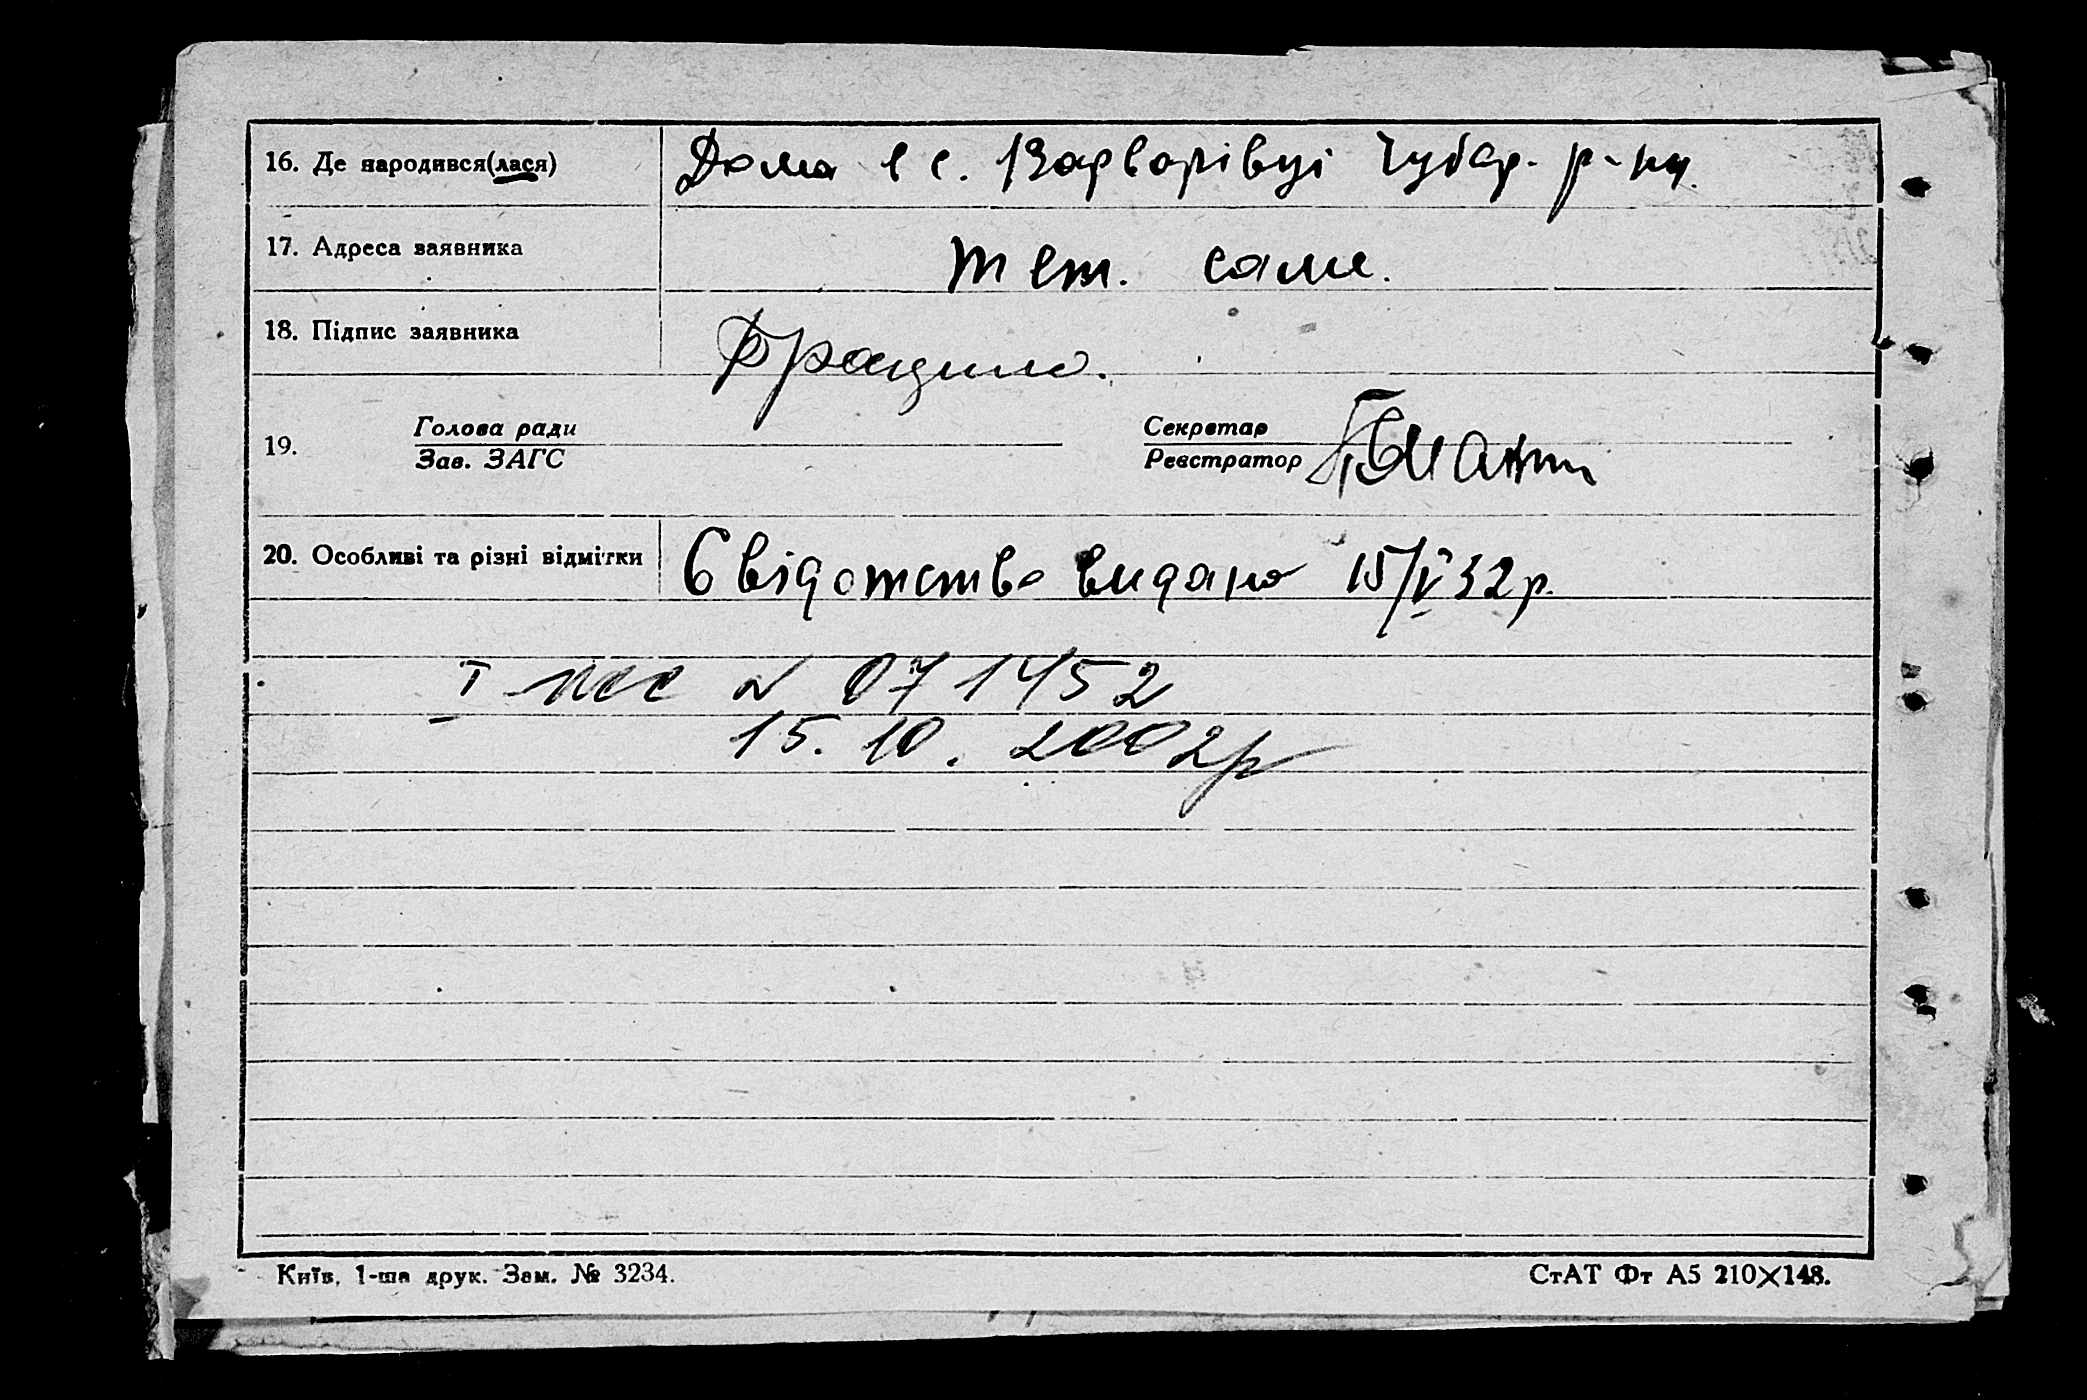 16. Де народився(лася) Дома в с. Варварівці Чубар. р-ну.
17. Адреса заявника теж саме.
18. Підпис заявника
19. Голова ради Секретар
Зав. ЗАГС Реєстратор
20. Особливі та різні відмітки Свідотство видано 15/V 32 р.
І № 071452
15.10.2002р
Київ, 1-ша друк. Зам. № 3234. СтАТ Фт А5 210×148.